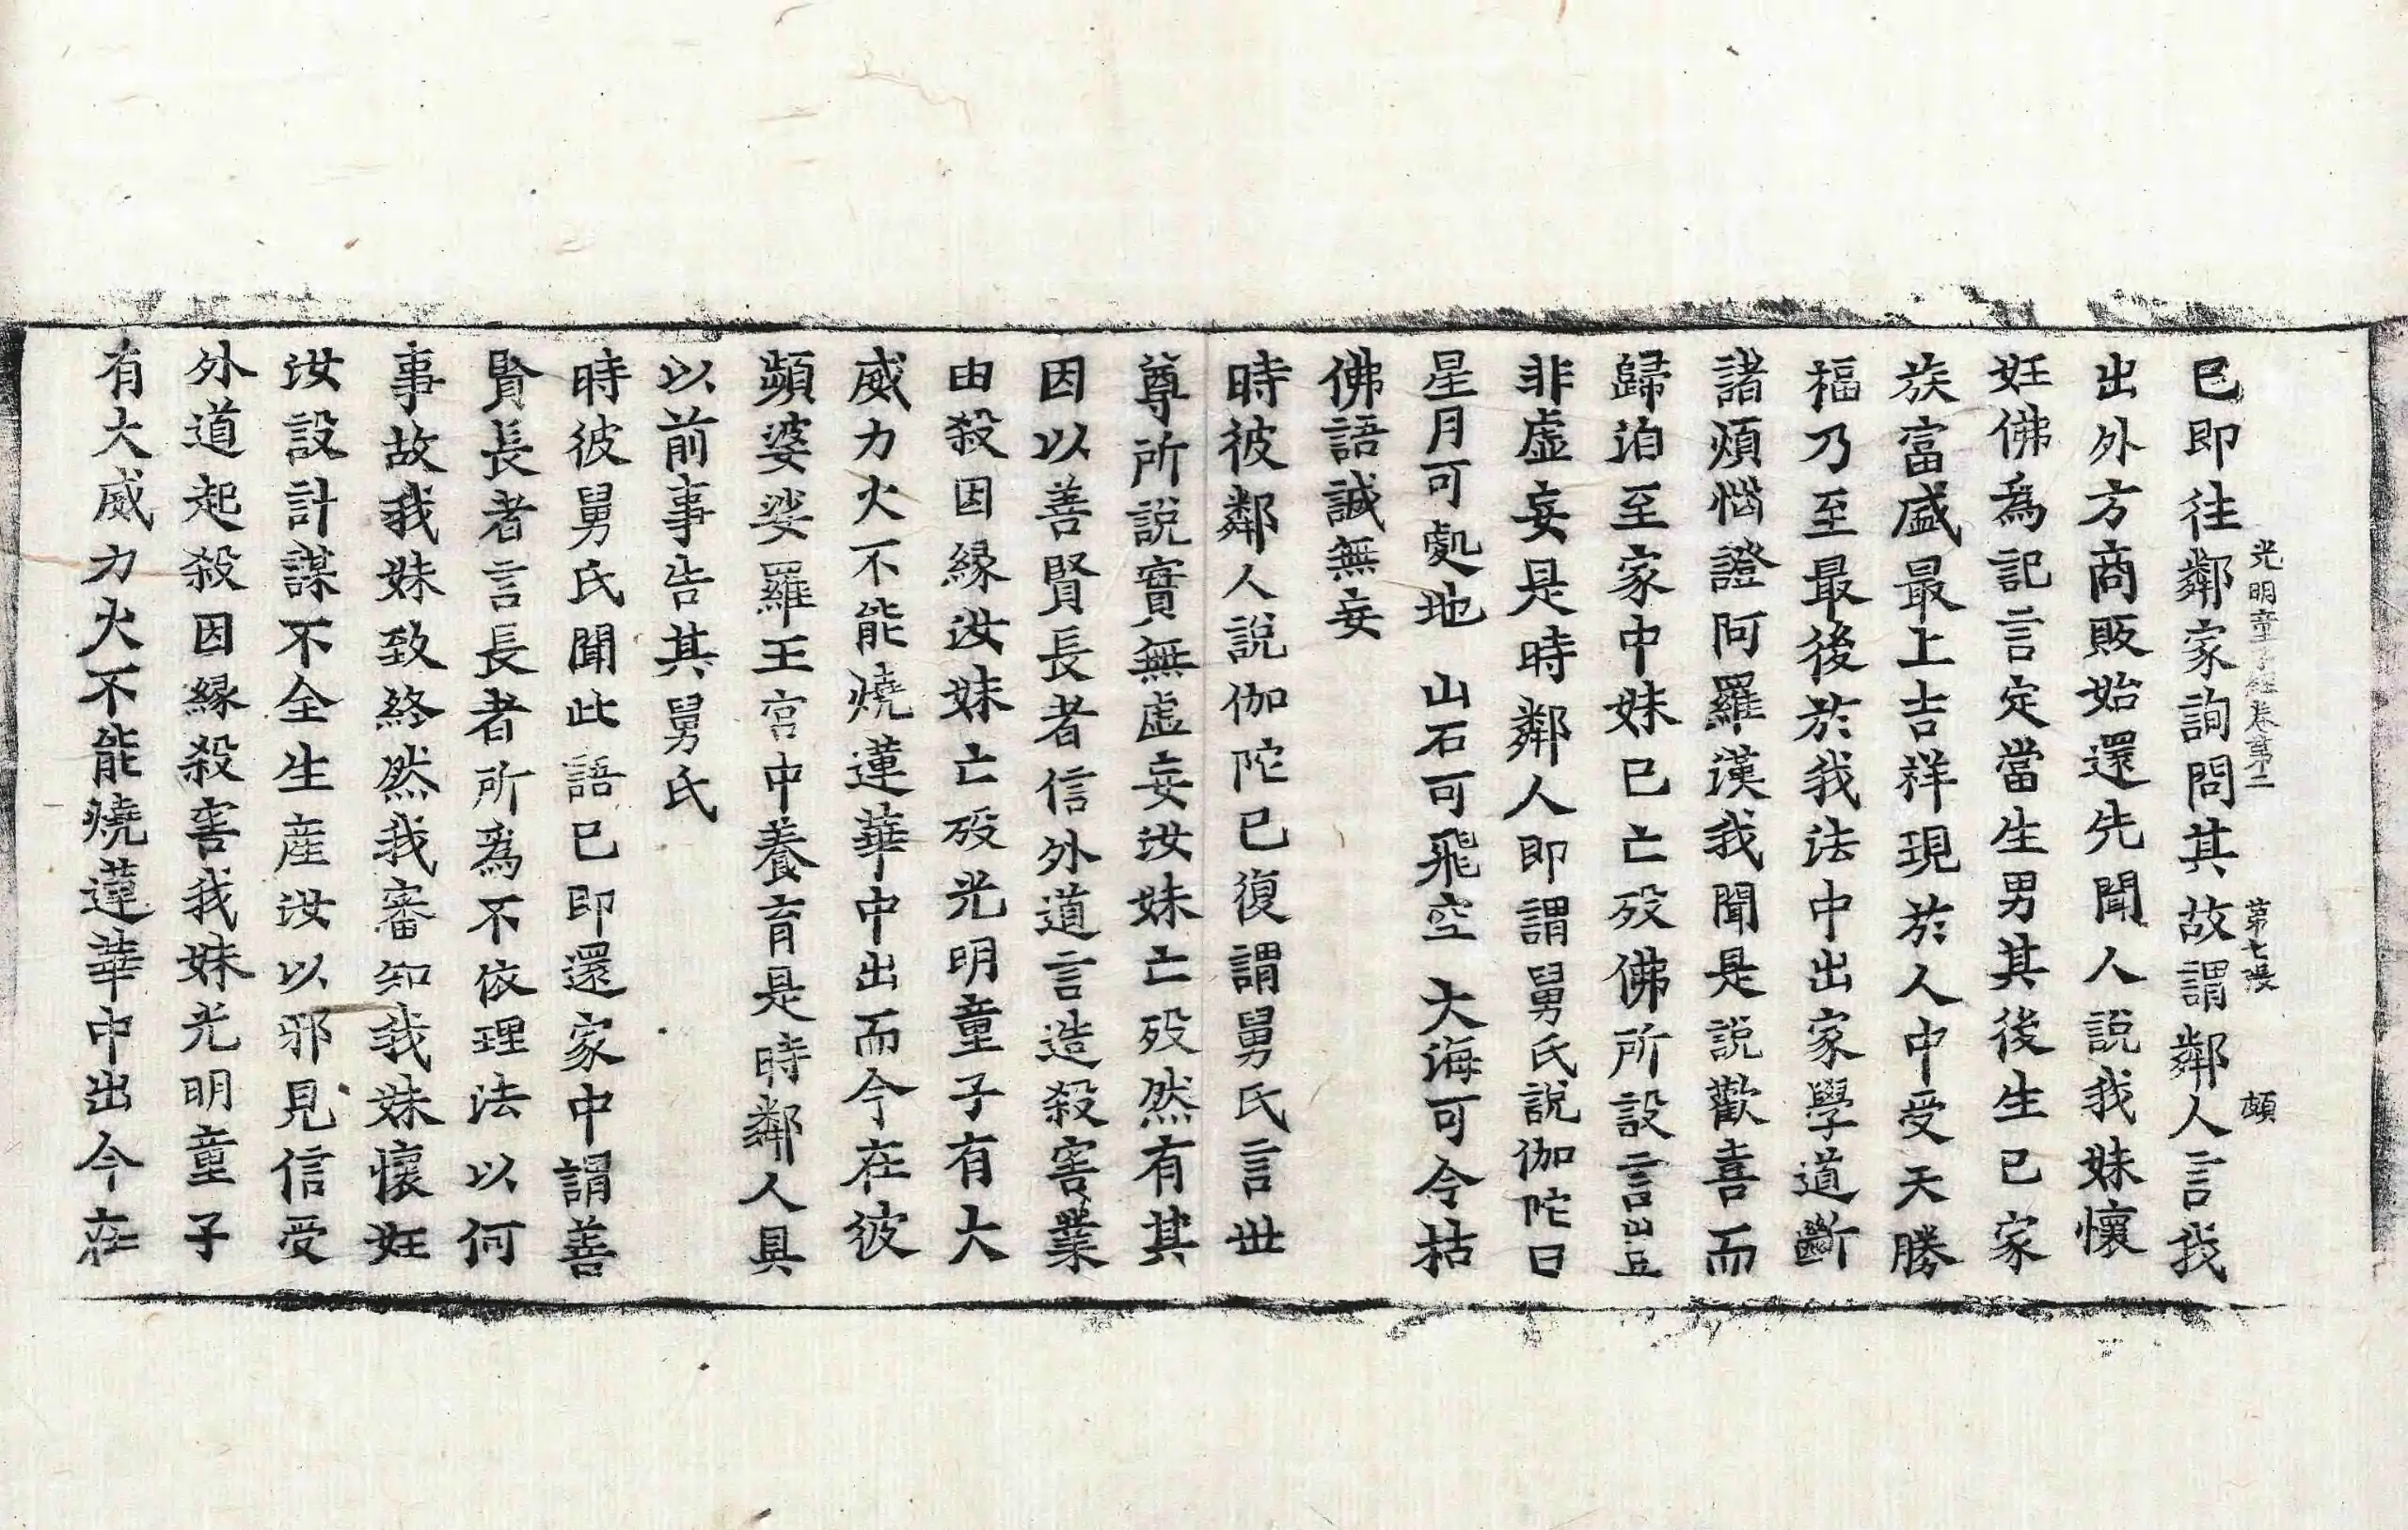 已即往鄰家詢問其故謂鄰人言我
光明童子經卷第二 第七張 頗
出外方商販始還先聞人說我妹懷
妊佛為記言定當生男其後生已家
族富盛最上吉祥現於人中受天勝
福乃至最後於我法中出家學道斷
諸煩惱證阿羅漢我聞是說歡喜而
歸洎至家中妹已亡歿佛所設言豈
非虛妄是時鄰人即謂舅氏說伽陀曰
星月可處地 山石可飛空 大海可令枯
佛語誠無妄
時彼鄰人說伽陀已復謂舅氏言世
尊所說實無虛妄汝妹亡歿然有其
因以善賢長者信外道言造殺害業
由殺因緣汝妹亡歿光明童子有大
威力火不能燒蓮華中出而今在彼
頻婆娑羅王宮中養育是時鄰人具
以前事告其舅氏
時彼舅氏聞此語已即還家中謂善
賢長者言長者所為不依理法以何
事故我妹致終然我審知我妹懷妊
汝設計謀不全生產汝以邪見信受
外道起殺因緣殺害我妹光明童子
有大威力火不能燒蓮華中出今在